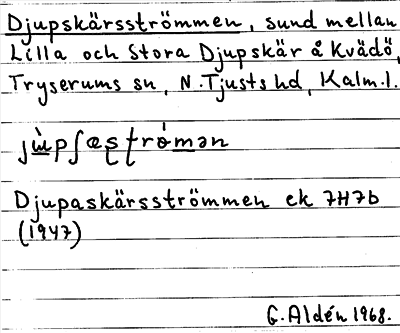 Djupskärsströmmen, sund mellan
Lilla och Stora Djupskär å Kvädö,
Tryserums sn, N. Tjusts hd, Kalm. l.
Djupaskärsströmmen ek 7H7b
(1947)
G. Aldén 1968.